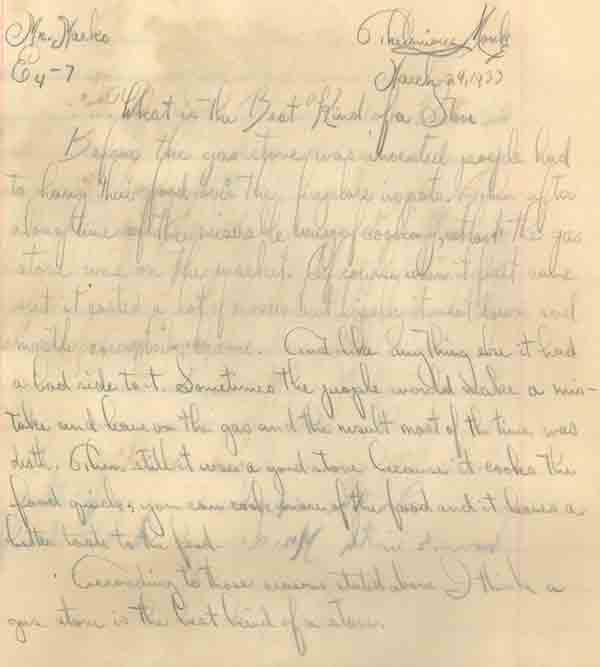 Mr. Marko Thelonious Monk
E4-7 March 29, 1933
What is the Best Kind of a Stove
Before the gas stove was invented people had
to hang their food over the fireplace in pots. Then after
along time of the miserable way of cooking, at last the gas
stove was on the market. Of course when it first came
out it costed a lot of money but it went down and
And like anything else it had
a bad side to it. Sometimes the people would make a mis-
take and leave on the gas and the result most of the time was
deth. Then still it was a good stove because it cooks the
food quick, you can cook more of the food and it leaves a
better taste to the food
According to those reasons stated above I think a
gas stove is the best kind of a stove.